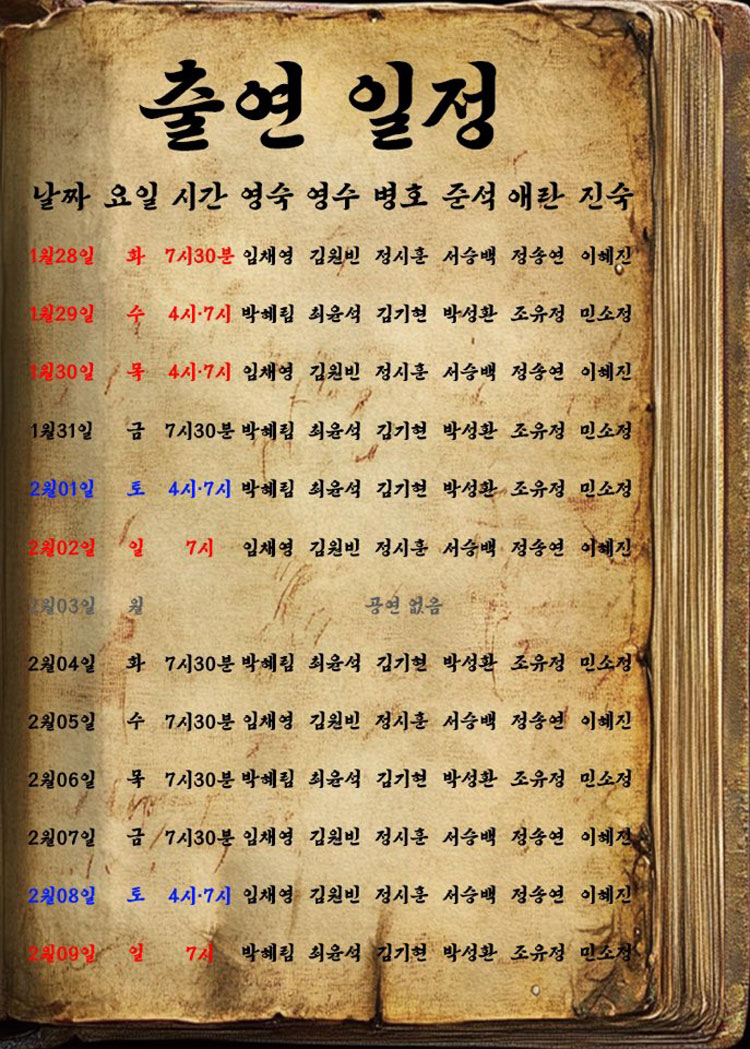 출연 일정
날짜 요일 시간 영숙 영수 병호 준석 애란 진숙
1월28일 화 7시30분 임채영 김원빈 정시훈 서승백 정송연 이혜진
1월29일 수 4시·7시 박혜림 최윤석 김기현 박성환 조유정 민소정
1월30일 목 4시·7시 임채영 김원빈 정시훈 서승백 정송연 이혜진
1월31일 금 7시30분 박혜림 최윤석 김기현 박성환 조유정 민소정
2월01일 토 4시·7시 박혜림 최윤석 김기현 박성환 조유정 민소정
2월02일 일 7시 임채영 김원빈 정시훈 서승백 정송연 이혜진
2월03일 월 공연 없음
2월04일 화 7시30분 박혜림 최윤석 김기현 박성환 조유정 민소정
2월05일 수 7시30분 임채영 김원빈 정시훈 서승백 정송연 이혜진
2월06일 목 7시30분 박혜림 최윤석 김기현 박성환 조유정 민소정
2월07일 금 7시30분 임채영 김원빈 정시훈 서승백 정송연 이혜진
2월08일 토 4시·7시 임채영 김원빈 정시훈 서승백 정송연 이혜진
2월09일 일 7시 박혜림 최윤석 김기현 박성환 조유정 민소정